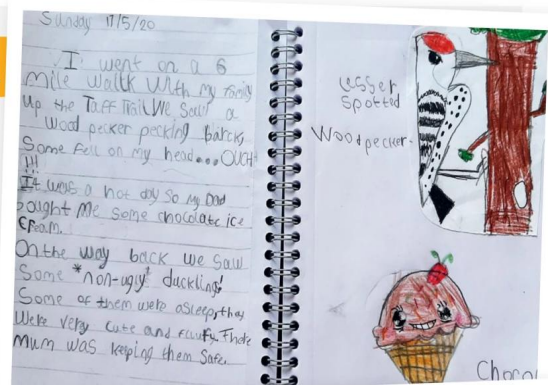 Sunday 17/5/20
I went on a 6
mile walk with my family
up the Taff Trail. We saw a
wood pecker pecking barck,
Some fell on my head...OUCH
!!!
It was a hot day so my Dad
bought me some chocolate ice
cream.
On the way back we saw
Some *non-ugly* ducklings!
Some of them were asleep, they
were very cute and fluffy. There
mum was keeping them safe.
Lesser
Spotted
Woodpecker.
Choco